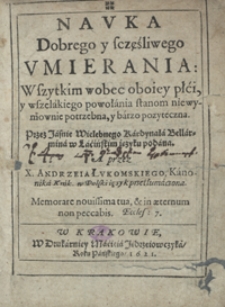 NAVKA
Dobrego y sczęśliwego
VMIERANIA:
Wszytkim wobec oboiey płći,
y wszelákiego powołánia stanom niewy-
mownie potrzebna, y bárzo pozyteczna.
Przez Jáśnie Wielebnego Kárdynałá Bellár-
miná w Łáćińskim ięzyku podána.
przez
X. ANDRZEIA ŁVKOMSKIEGO, Káno-
niká w Polski ięzyk przetłumáczona.
Memorare nouissima tua, & in æternum
non peccabis. Eccles: 7.
W KRAKOWIE,
W Drukárniey Máćieiá Jędrzeiowczyká,
Roku Páńskiego: 1621.